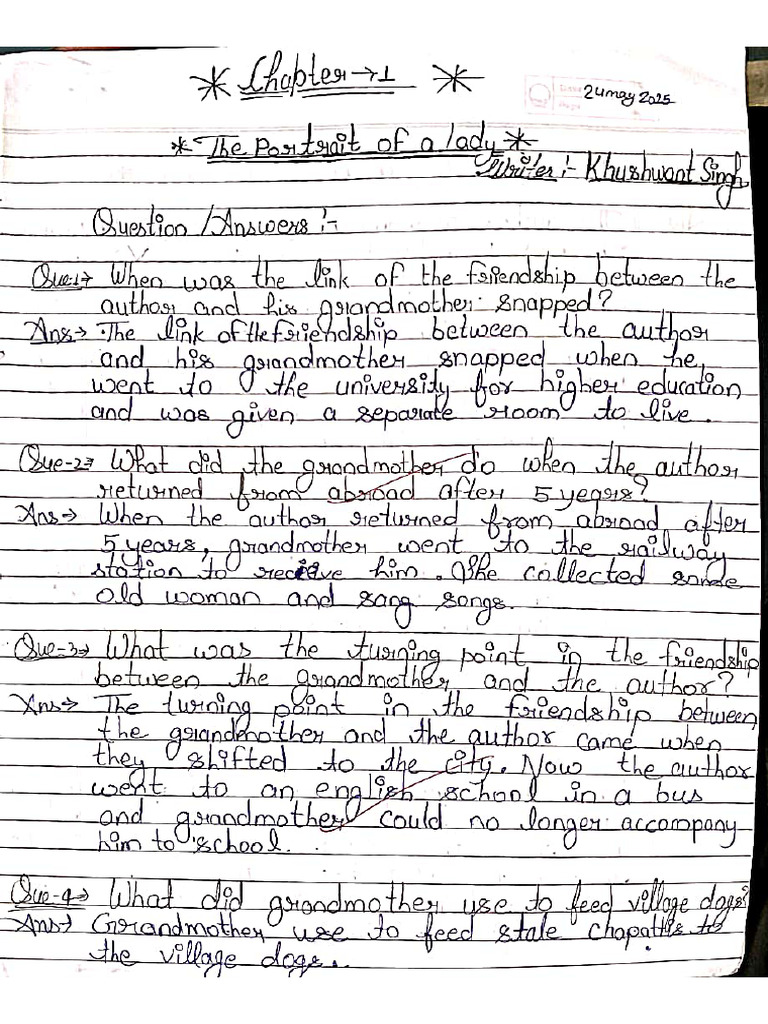 * Chapter → 1 *
24 may 2025
* The Portrait of a lady *
Writer :- Khushwant Singh
Question / Answers :-
Que-1→ When was the link of the friendship between the
author and his grandmother snapped?
Ans→ The link of the friendship between the author
and his grandmother snapped when he
went to the university for higher education
and was given a separate room to live.
Que-2→ What did the grandmother do when the author
returned from abroad after 5 years?
Ans→ When the author returned from abroad after
5 years, grandmother went to the railway
station to recieve him. She collected some
old woman and sang songs.
Que-3→ What was the turning point in the friendship
between the grandmother and the author?
Ans→ The turning point in the friendship between
the grandmother and the author came when
they shifted to the city. Now the author
went to an english school in a bus
and grandmother could no longer accompany
him to school.
Que-4→ What did grandmother use to feed village dogs?
Ans→ Grandmother use to feed stale chapattis to
the village dogs.